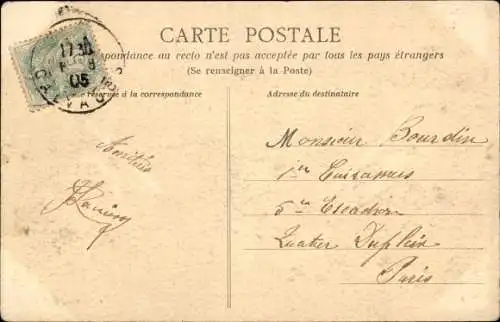 CARTE POSTALE
pondance au recto n'est pas acceptée par tous les pays étrangers
(Se renseigner à la Poste)
réservé à la correspondance
Adresse du destinataire
1730
05
Amitiés
Monsieur Bourdin
1er Cuirassiers
5me Escadron
Quartier Dupleix
Paris